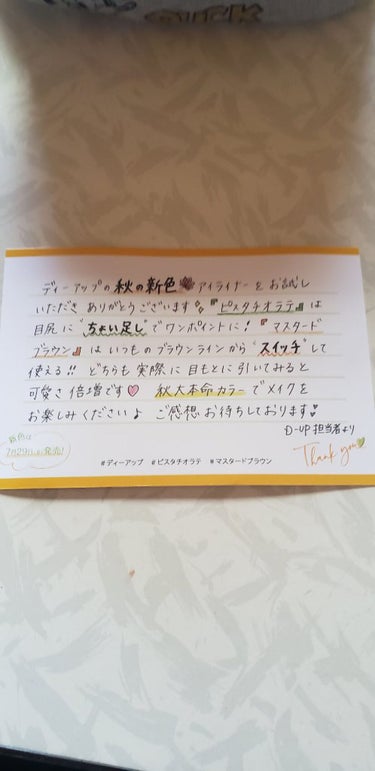 ディーアップの秋の新色🍁アイライナーをお試し
いただき ありがとうございます✨『ピスタチオラテ』は
目尻に"ちょい足し"でワンポイントに!『マスタード
ブラウン』はいつものブラウンラインから"スイッチ"して
使える!! どちらも実際に目もとに引いてみると
可愛さ倍増です♡ 秋大本命カラーでメイクを
お楽しみください♪ ご感想お待ちしております!
D-UP担当者より
新色は
7月29日発売!
Thank you
#ディーアップ #ピスタチオラテ #マスタードブラウン